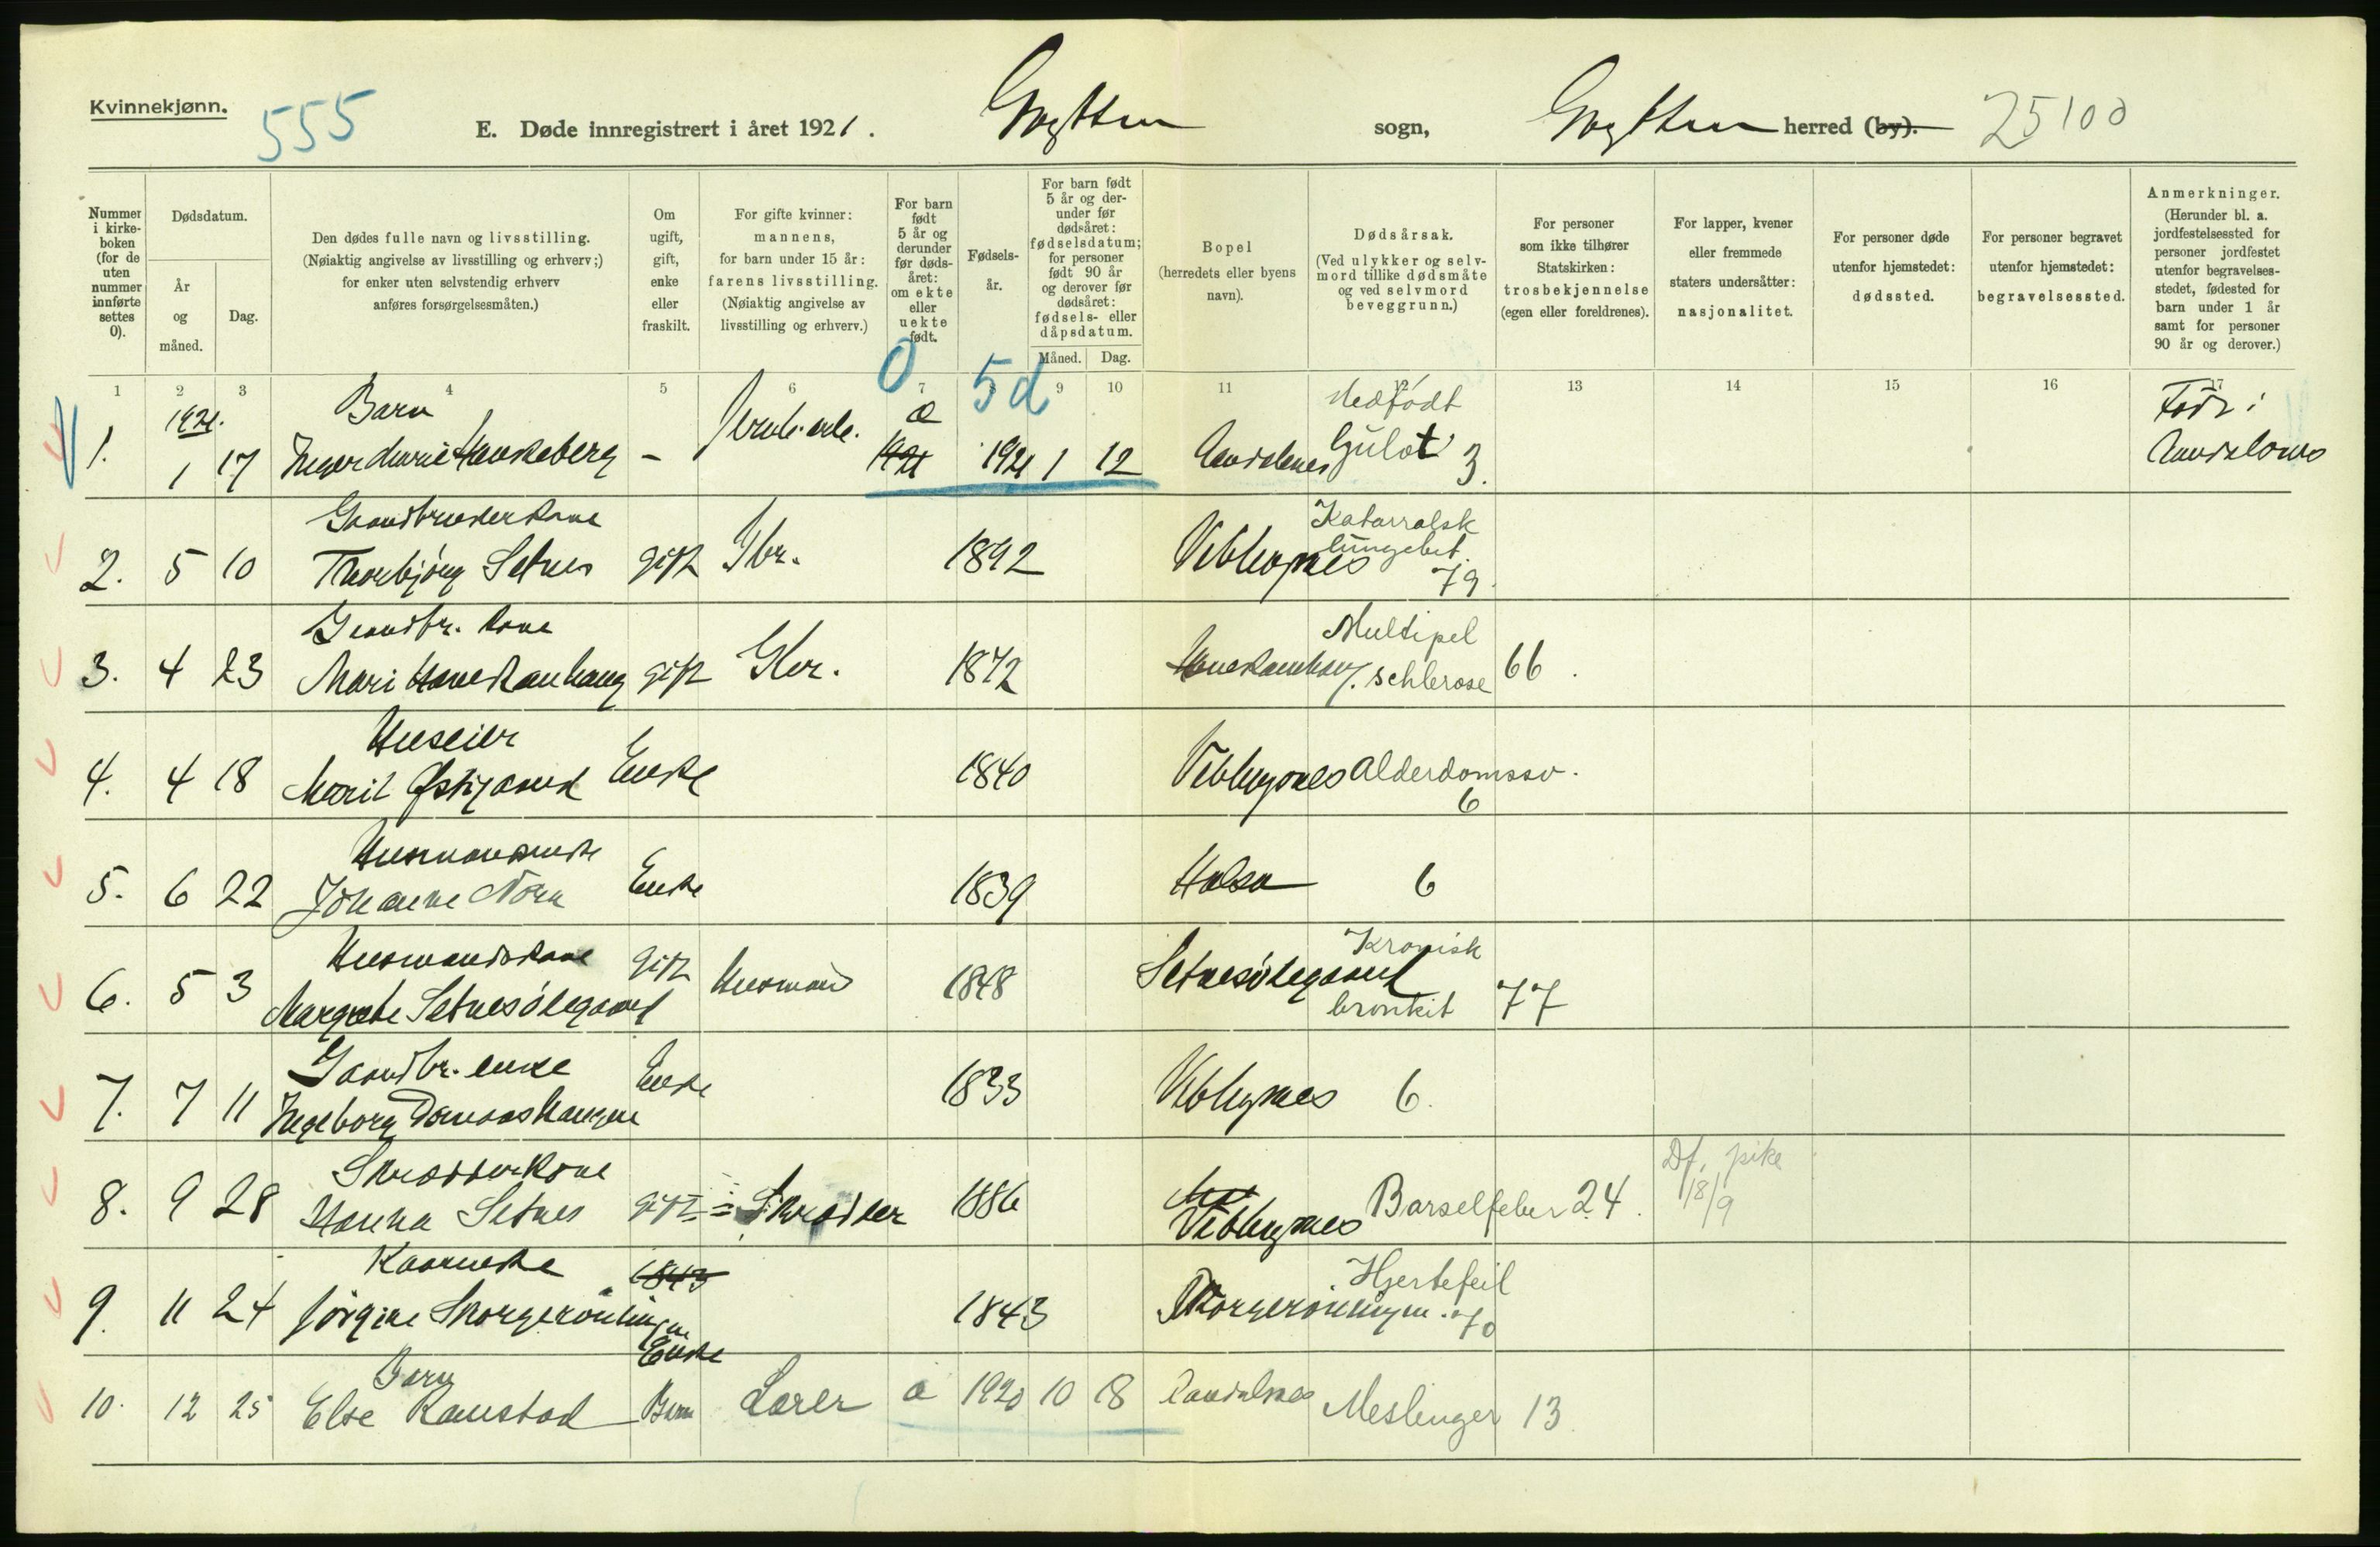 Kvinnekjønn.
555
E. Døde innregistrert i året 1921.
Grytten sogn, Grytten herred (by).
25100
Nummer i kirkeboken (for de uten nummer innførte settes 0).
Dødsdatum.
År og måned.
Dag.
Den dødes fulle navn og livsstilling.
(Nøiaktig angivelse av livsstilling og erhverv;)
for enker uten selvstendig erhverv
anføres forsørgelsesmåten.)
Om ugift, gift, enke eller fraskilt.
For gifte kvinner:
mannens,
for barn under 15 år:
farens livsstilling.
(Nøiaktig angivelse av
livsstilling og erhverv.)
For barn født 5 år og derunder før dødsåret: om ekte eller uekte født.
Fødselsår.
For barn født 5 år og derunder før dødsåret: fødselsdatum; for personer født 90 år og derover før dødsåret: fødsels- eller dåpsdatum.
Måned.
Dag.
Bopel
(herredets eller byens
navn).
Dødsårsak.
(Ved ulykker og selv-
mord tillike dødsmåte
og ved selvmord
beveggrunn.)
For personer
som ikke tilhører
Statskirken:
trosbekjennelse
(egen eller foreldrenes).
For lapper, kvener
eller fremmede
staters undersåtter:
nasjonalitet.
For personer døde
utenfor hjemstedet:
dødssted.
For personer begravet
utenfor hjemstedet:
begravelsessted.
Anmerkninger.
(Herunder bl. a.
jordfestelsessted for
personer jordfestet
utenfor begravelses-
stedet, fødested for
barn under 1 år
samt for personer
90 år og derover.)
1 2 3 4 5 6 7 9 10 11 13 14 15 16 17
0 5d
1921. Barn æ Medfødt Født i
1. 1 17 Inger Marie Hauskeberg - 1921 1921 1 12 Aandalsnes Gulsot 3. Aandalsnes
Gaardbrukerkone Katarralsk
2. 5 10 Thorbjørg Setnes gift Gbr. 1892 Veblugsnes lungebet. 79.
Gaardbr. kone Multipel
3. 4 23 Mari Haneskamhaug gift Gbr. 1872 Haneskamhaug. schlerose 66.
Huseier
4. 4 18 Marit Østigaard Enke 1840 Veblungsnes Alderdomssv. 6
Husmandsenke
5. 6 22 Johanne Nora Enke 1839 Halsa 6
Husmandskone Kronisk
6. 5 3 Margrete Setnesødegaard gift Husmand 1848 Setnesødegaard bronkit 77
Gaardbr. enke
7. 7 11 Ingeborg Damaashaugen Enke 1833 Veblugsnes 6.
Skrædderkone Df. pike
8. 9 28 Hanna Setnes gift Skrædder 1886 Veblugsnes Barselfeber 24. 18/9
Kaarenke 1843 Hjertefeil
9. 11 24 Jørgine Skorgerønningen Enke 1843 Skorgerønningen. 70
Barn
10. 12 25 Else Ramstad Barn Lærer æ 1920 10 18 Aandalsnes Meslinger 13.